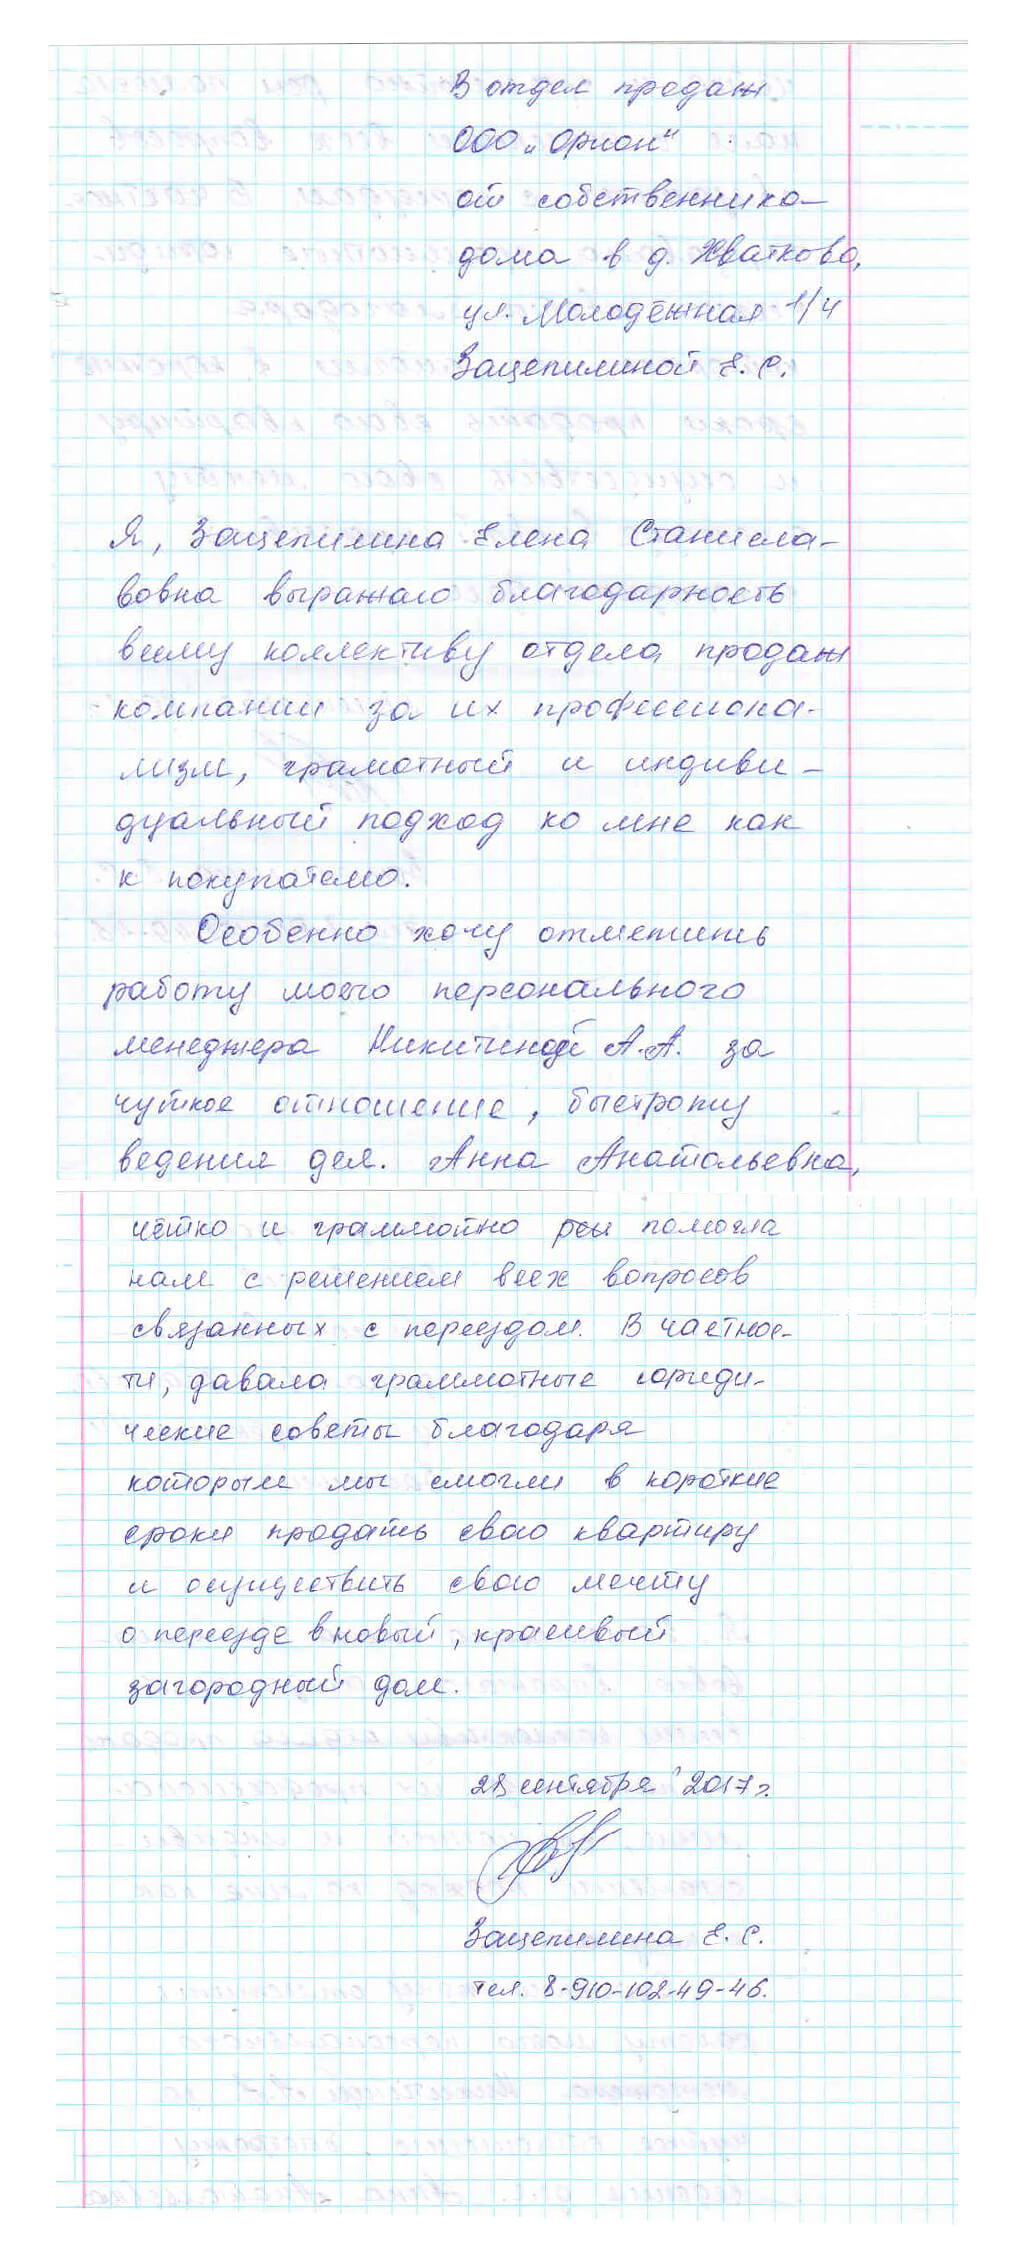 В отдел продаж
ООО „Орион“
от собственника
дома в д. Хватково,
ул. Молодёжная 1/4
Зацепилиной Е. С.
Я, Зацепилина Елена Станисла-
вовна выражаю благодарность
всему коллективу отдела продаж
компании за их профессиона-
лизм, грамотный и индиви-
дуальный подход ко мне как
к покупателю.
Особенно хочу отметить
работу моего персонального
менеджера Никитиной А.А. за
чуткое отношение, быстроту
ведения дел. Анна Анатольевна,
чётко и граммотно помогла
нам с решением всех вопросов
связанных с переездом. В частнос-
ти, давала граммотные юриди-
ческие советы благодаря
которым мы смогли в короткие
сроки продать свою квартиру
и осуществить свою мечту
о переезде в новый, красивый
загородный дом.
28 сентября 2017 г.
Зацепилина Е. С.
тел. 8-910-102-49-46.